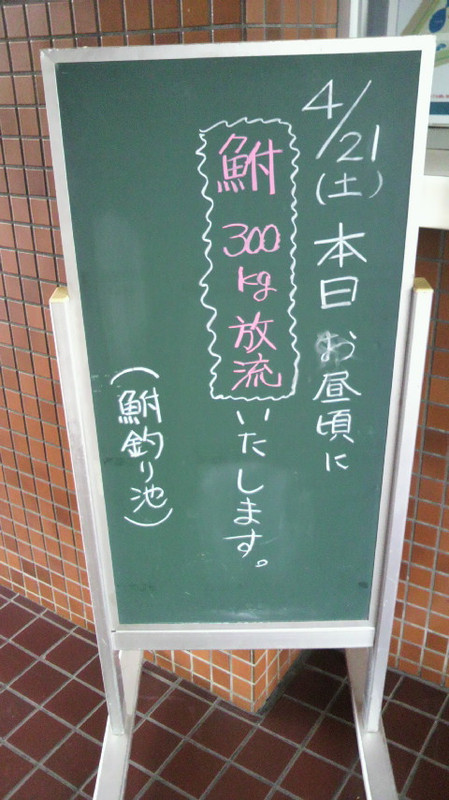 4/21(土)本日お昼頃に
鮒300kg放流いたします。
(鮒釣り池)